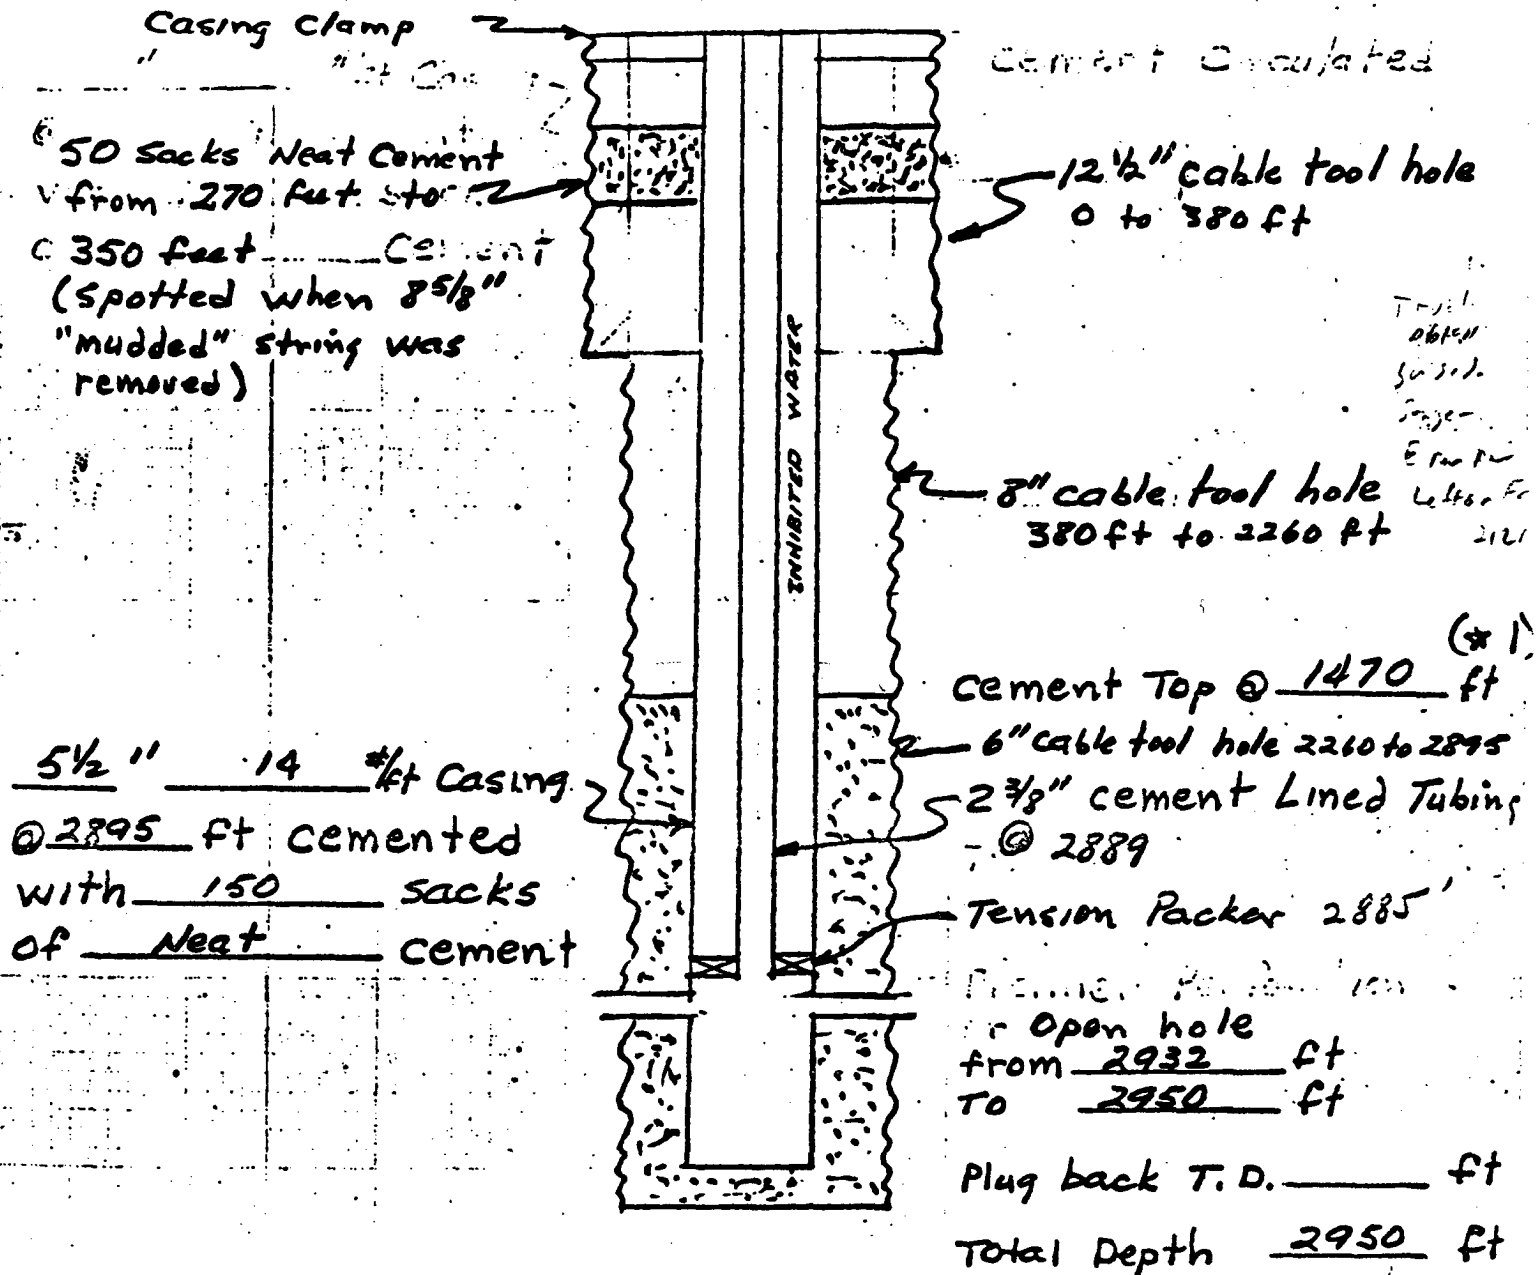 Casing Clamp
50 sacks Neat Cement
from 270 feet to
350 feet
Cement
(spotted when 8 5/8"
"mudded" string was
removed)
5 1/2" 14 #/ft Casing
@ 2895 ft cemented
with 150 sacks
of Neat cement
INHIBITED WATER
Cement Circulated
12 1/2" cable tool hole
0 to 380 ft
8" cable tool hole
380 ft to 2260 ft
(* 1)
Cement Top @ 1470 ft
6" cable tool hole 2260 to 2895
2 3/8" cement Lined Tubing
@ 2889
Tension Packer 2885'
Open hole
from 2932 ft
To 2950 ft
Plug back T.D. ft
Total Depth 2950 ft